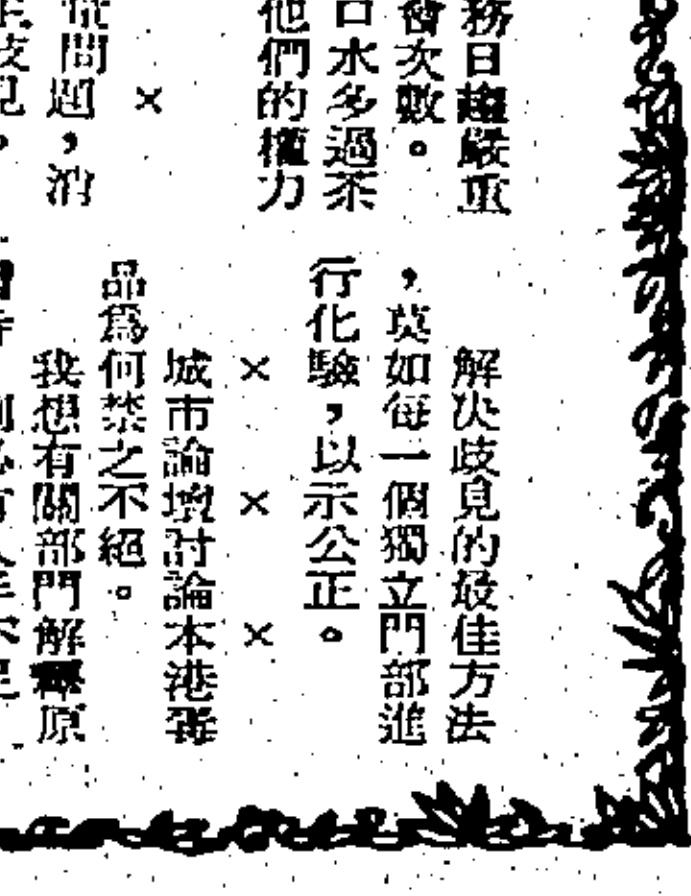 務日趨嚴重
會次數。
口水多過茶
他們的權力
×
問題，消
歧見，
解決歧見的最佳方法
，莫如每一個獨立門部進
行化驗，以示公正。
× × ×
城市論壇討論本港毒
品爲何禁之不絕。
我想有關部門解釋原